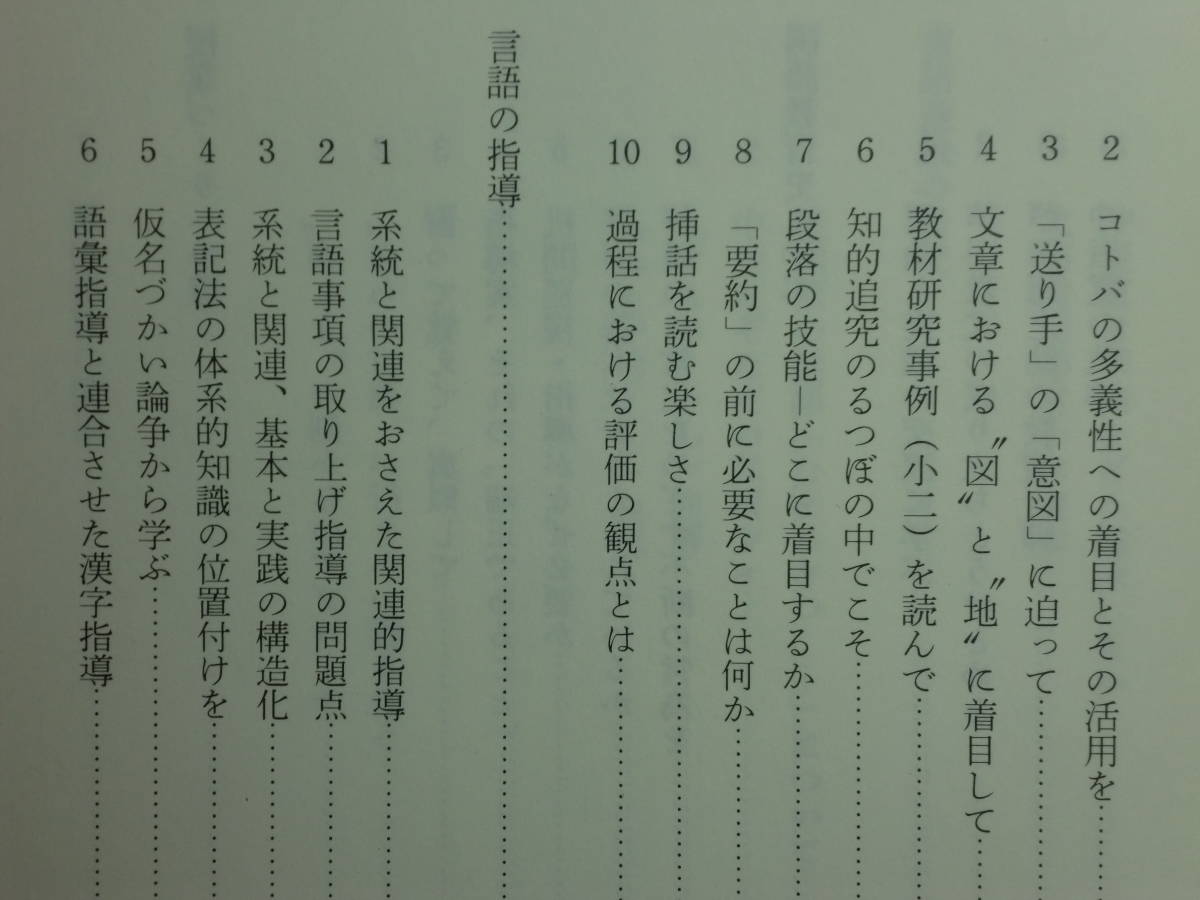 2 コトバの多義性への着目とその活用を…………
3 「送り手」の「意図」に迫って…………
4 文章における〝図〟と〝地〟に着目して…………
5 教材研究事例（小二）を読んで…………
6 知的追究のるつぼの中でこそ…………
7 段落の技能―どこに着目するか…………
8 「要約」の前に必要なことは何か…………
9 挿話を読む楽しさ…………
10 過程における評価の観点とは…………
言語の指導…………
1 系統と関連をおさえた関連的指導…………
2 言語事項の取り上げ指導の問題点…………
3 系統と関連、基本と実践の構造化…………
4 表記法の体系的知識の位置付けを…………
5 仮名づかい論争から学ぶ…………
6 語彙指導と連合させた漢字指導…………